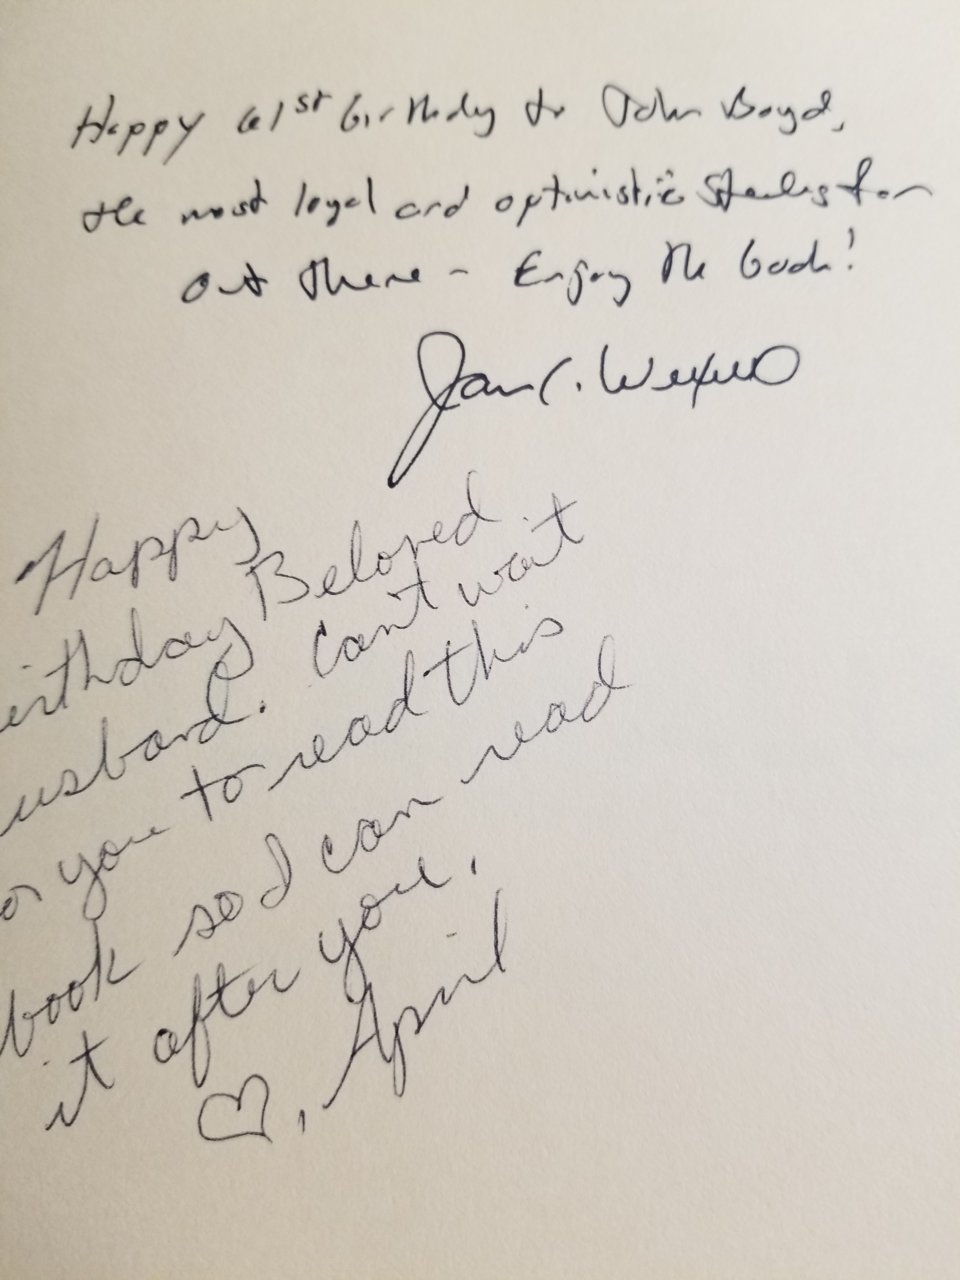 Happy 61st birthday to John Boyd,
the most loyal and optimistic Steelers fan
out there - Enjoy the book!
Happy
irthday Beloved
usband. Can't wait
or you to read this
book so I can read
it after you.
♡, April